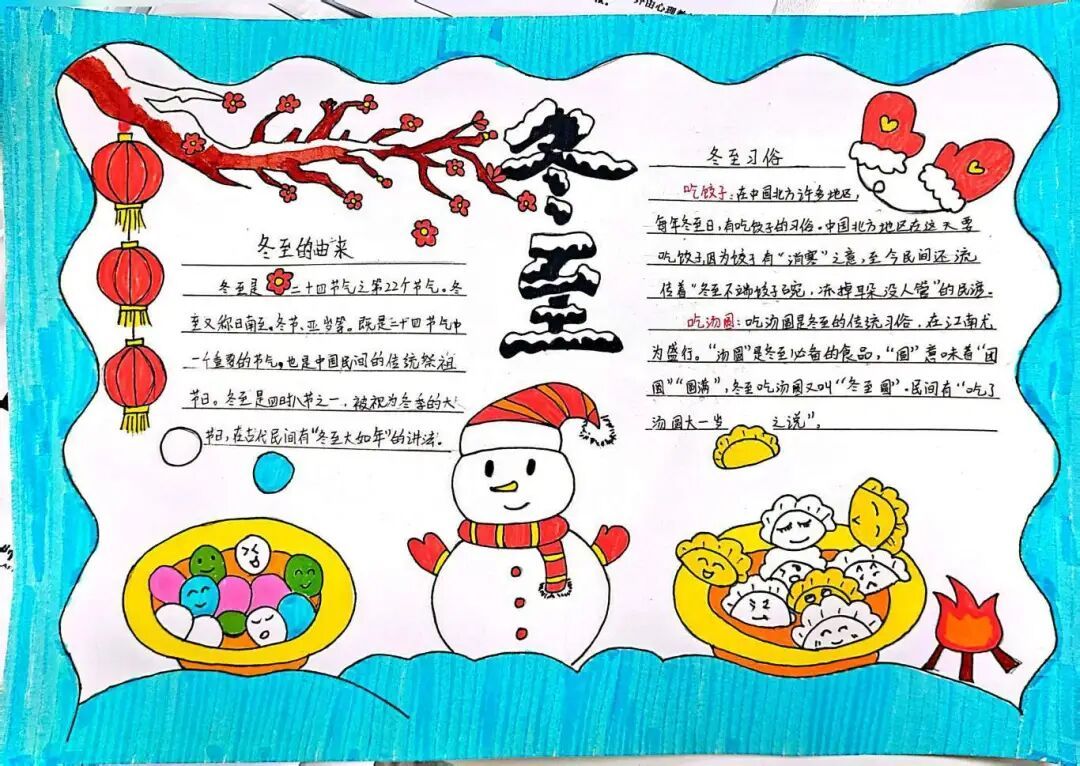 冬至
冬至的由来
冬至是二十四节气之第22个节气。冬
至又称日南至。冬节、亚岁等。既是二十四节气中
一个重要的节气。也是中国民间的传统祭祖
节日。冬至是四时八节之一,被视为冬季的大
节日,在古代民间有“冬至大如年”的讲法。
冬至习俗
吃饺子:在中国北方许多地区,
每年冬至日,有吃饺子的习俗。中国北方地区在这天要
吃饺子,因为饺子有“消寒”之意,至今民间还流
传着“冬至不端饺子碗,冻掉耳朵没人管”的民谣。
吃汤圆:吃汤圆是冬至的传统习俗,在江南尤
为盛行。“汤圆”是冬至必备的食品,“圆”意味着“团
圆”“圆满”,冬至吃汤圆又叫“冬至圆”。民间有“吃了
汤圆大一岁之说”。